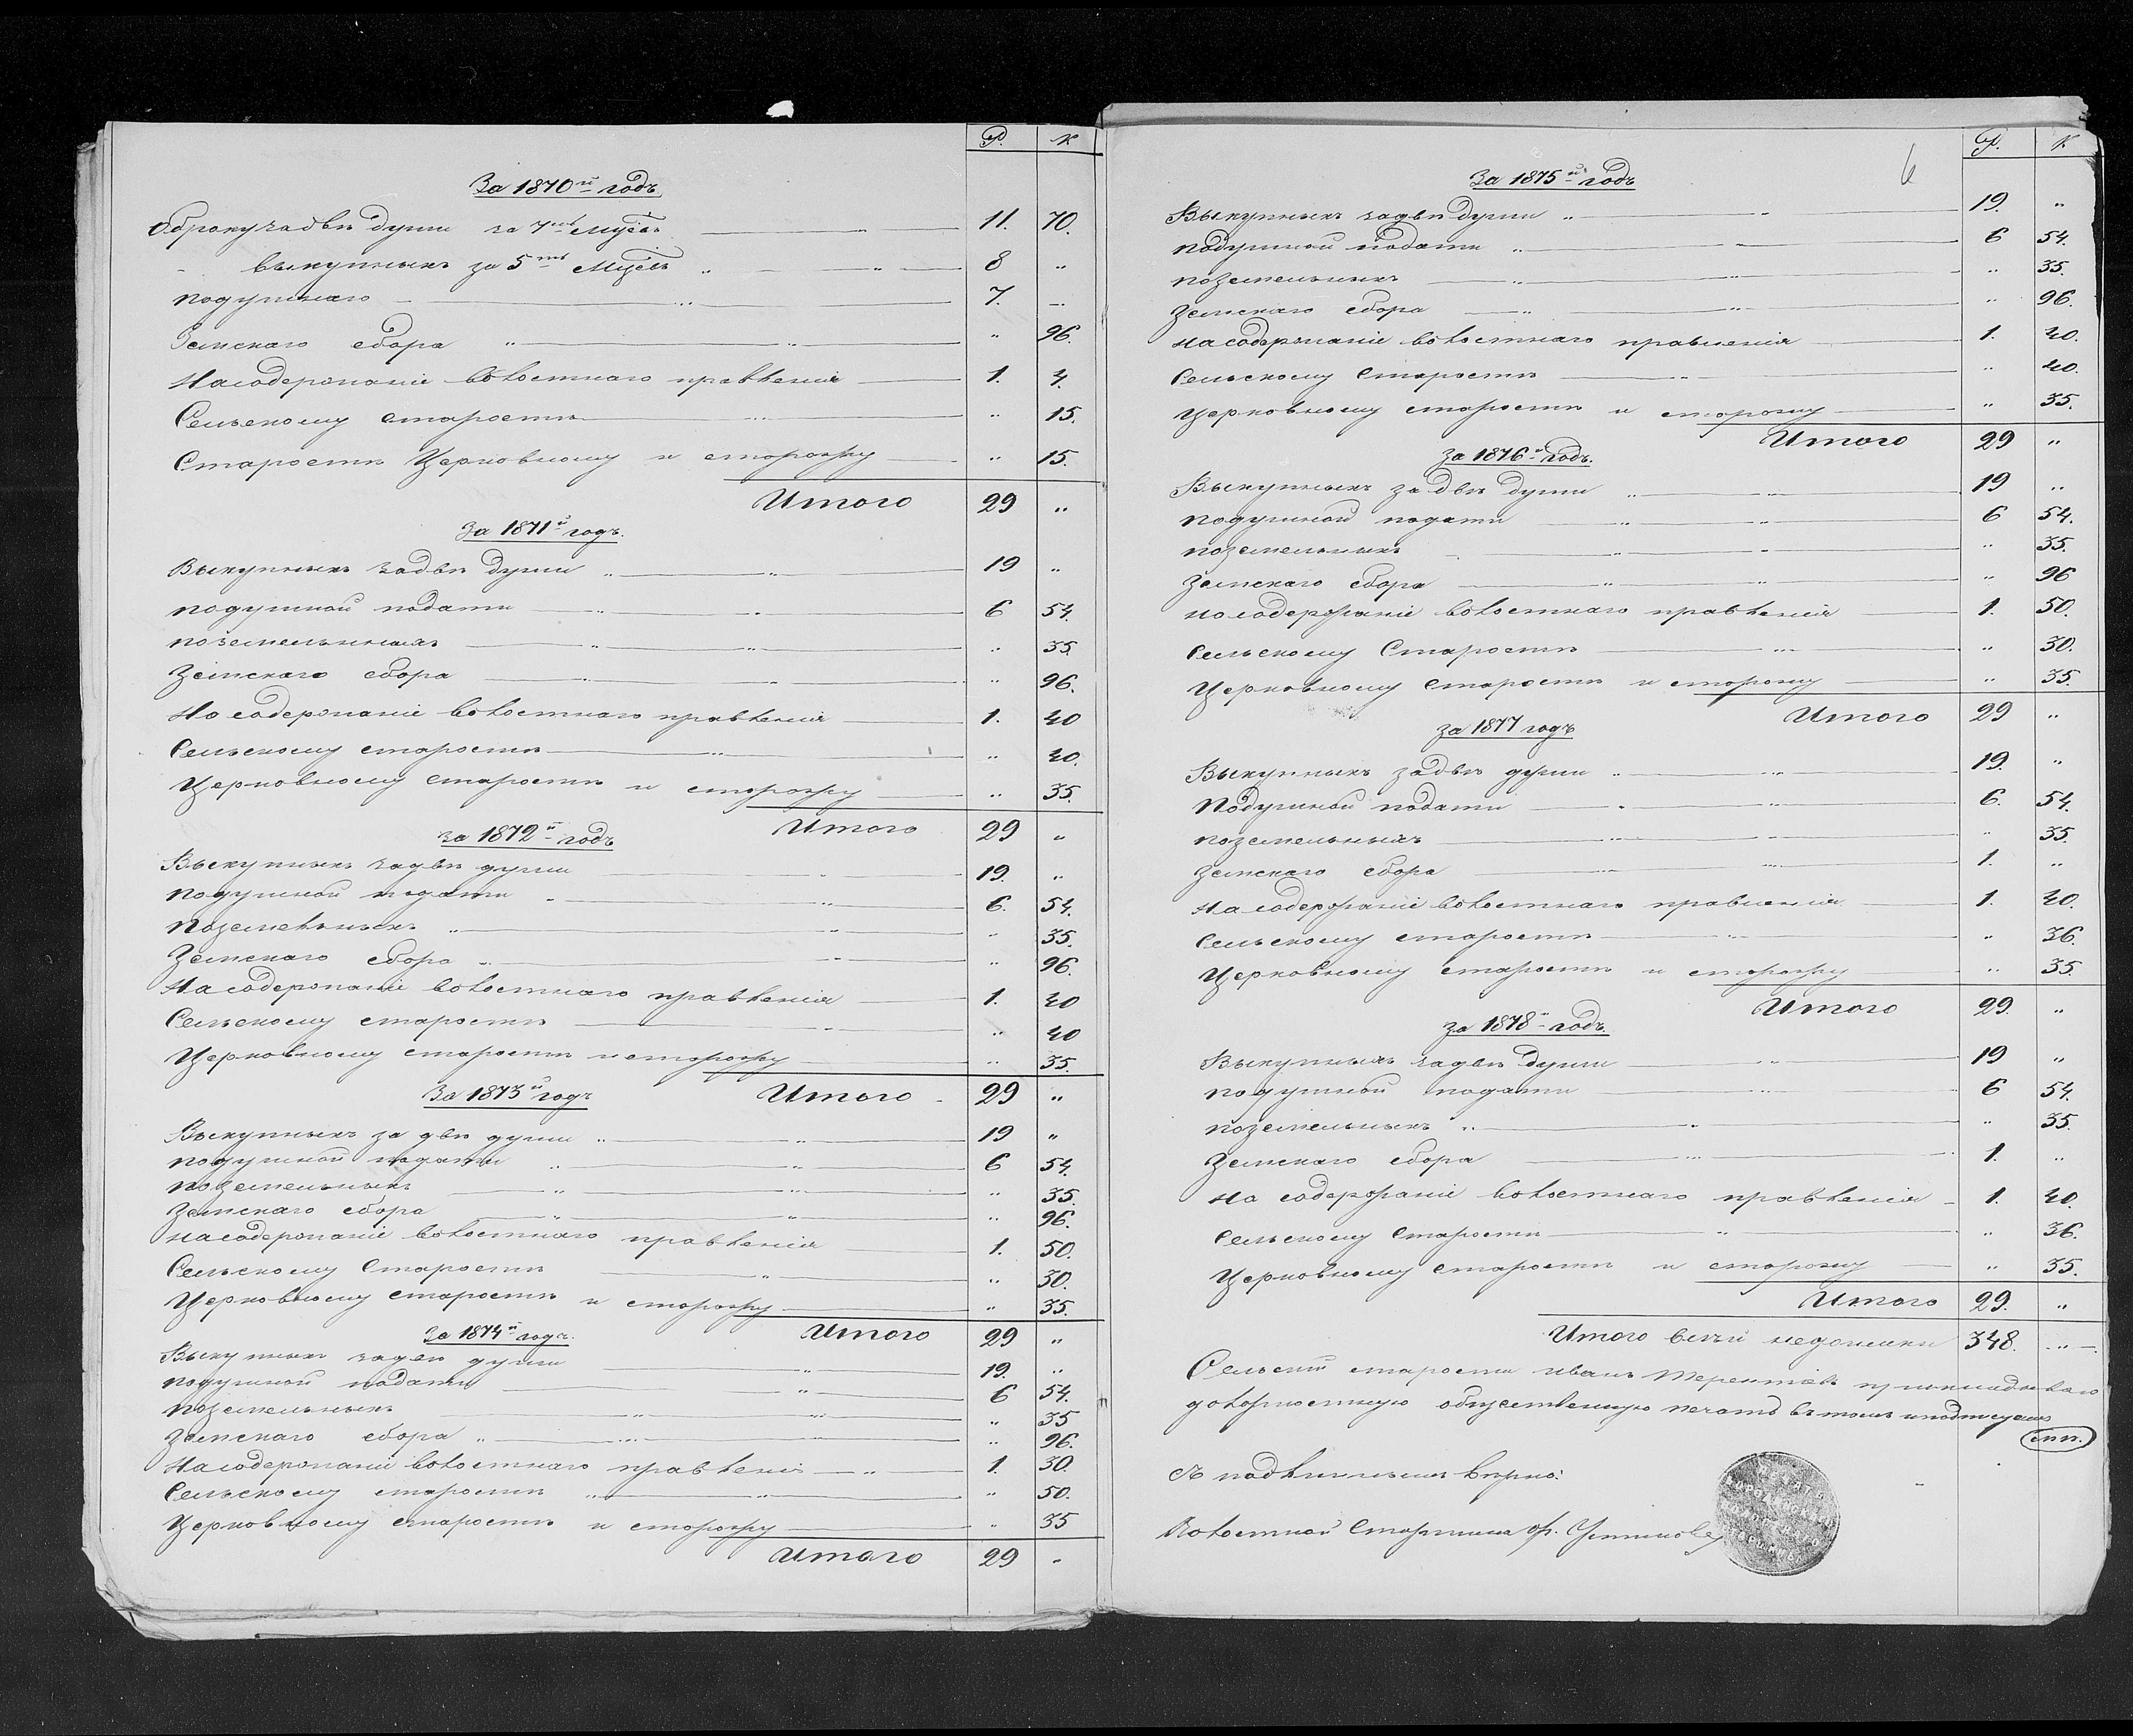 Р. К
За 1870й годъ
Оброку за двѣ души за 7мь мѣсяц. 11. 70.
выкупныхъ за 5ть мѣсяц. „ 8 „
подушнаго 7. —
Земскаго сбора „ „ 96.
На содержаніе волостнаго правленія 1. 4.
Сельскому старостѣ „ 15.
Старостѣ Церковному и сторожу „ 15.
Итого 29 „
За 1871й годъ.
Выкупныхъ за двѣ души „ 19 „
подушной подати 6 54.
поземельныхъ „ 35.
Земскаго сбора „ 96.
На содержаніе волостнаго правленія 1. 40
Сельскому старостѣ „ 40.
Церковному старостѣ и сторожу „ 35.
за 1872й годъ Итого 29 „
Выкупныхъ за двѣ души 19. „
подушной подати 6. 54.
Поземельныхъ „ „ 35.
Земскаго сбора „ „ 96.
На содержаніе волостнаго правленія 1. 40
Сельскому старостѣ „ 40
Церковному старостѣ и сторожу „ 35.
За 1873й годъ Итого 29 „
Выкупныхъ за двѣ души „ 19 „
подушной подати 6 54.
поземельныхъ „ 35.
Земскаго сбора „ 96.
На содержаніе волостнаго правленія 1. 50.
Сельскому Старостѣ „ 30.
Церковному старостѣ и сторожу „ 35.
За 1874й годъ. Итого 29 „
Выкупныхъ за двѣ души 19. „
подушной подати 6 54.
поземельныхъ „ 35
Земскаго сбора „ „ 96.
На содержаніе волостнаго правленія 1. 30.
Сельскому старостѣ „ 50.
Церковному старостѣ и сторожу „ 35
Итого 29 -
6
Р. К
За 1875й годъ
Выкупныхъ за двѣ души „ 19. „
подушной подати „ 6 54.
поземельныхъ „ 35.
Земскаго сбора „ 96.
На содержаніе волостнаго правленія 1. 40.
Сельскому Старостѣ „ 40.
Церковному старостѣ и сторожу „ 35.
Итого 29 „
За 1876й годъ.
Выкупныхъ за двѣ души 19 „
подушной подати 6 54.
поземельныхъ „ 35.
Земскаго сбора „ 96
На содержаніе волостнаго правленія 1. 50.
Сельскому Старостѣ „ 30.
Церковному старостѣ и сторожу „ 35.
Итого 29 „
за 1877 годъ
Выкупныхъ за двѣ души „ 19. „
Подушной подати 6. 54.
поземельныхъ „ 35.
Земскаго сбора 1. „
На содержаніе волостнаго правленія 1. 40.
Сельскому старостѣ „ 36.
Церковному старостѣ и сторожу „ 35
Итого 29. „
за 1878й годъ.
Выкупныхъ за двѣ души 19 „
подушной подати 6 54.
поземельныхъ „ „ 35.
Земскаго сбора 1. „
На содержаніе волостнаго правленія 1. 40.
Сельскому Старостѣ „ 36.
Церковному старостѣ и сторожу „ 35.
Итого 29. „
Итого всей недоимки 348. „
Сельскій староста Иванъ Терентіевъ
должностную общественную печать въ томъ и подписуемъ
м.п.
Съ подлиннымъ вѣрно:
Волостной Старшина